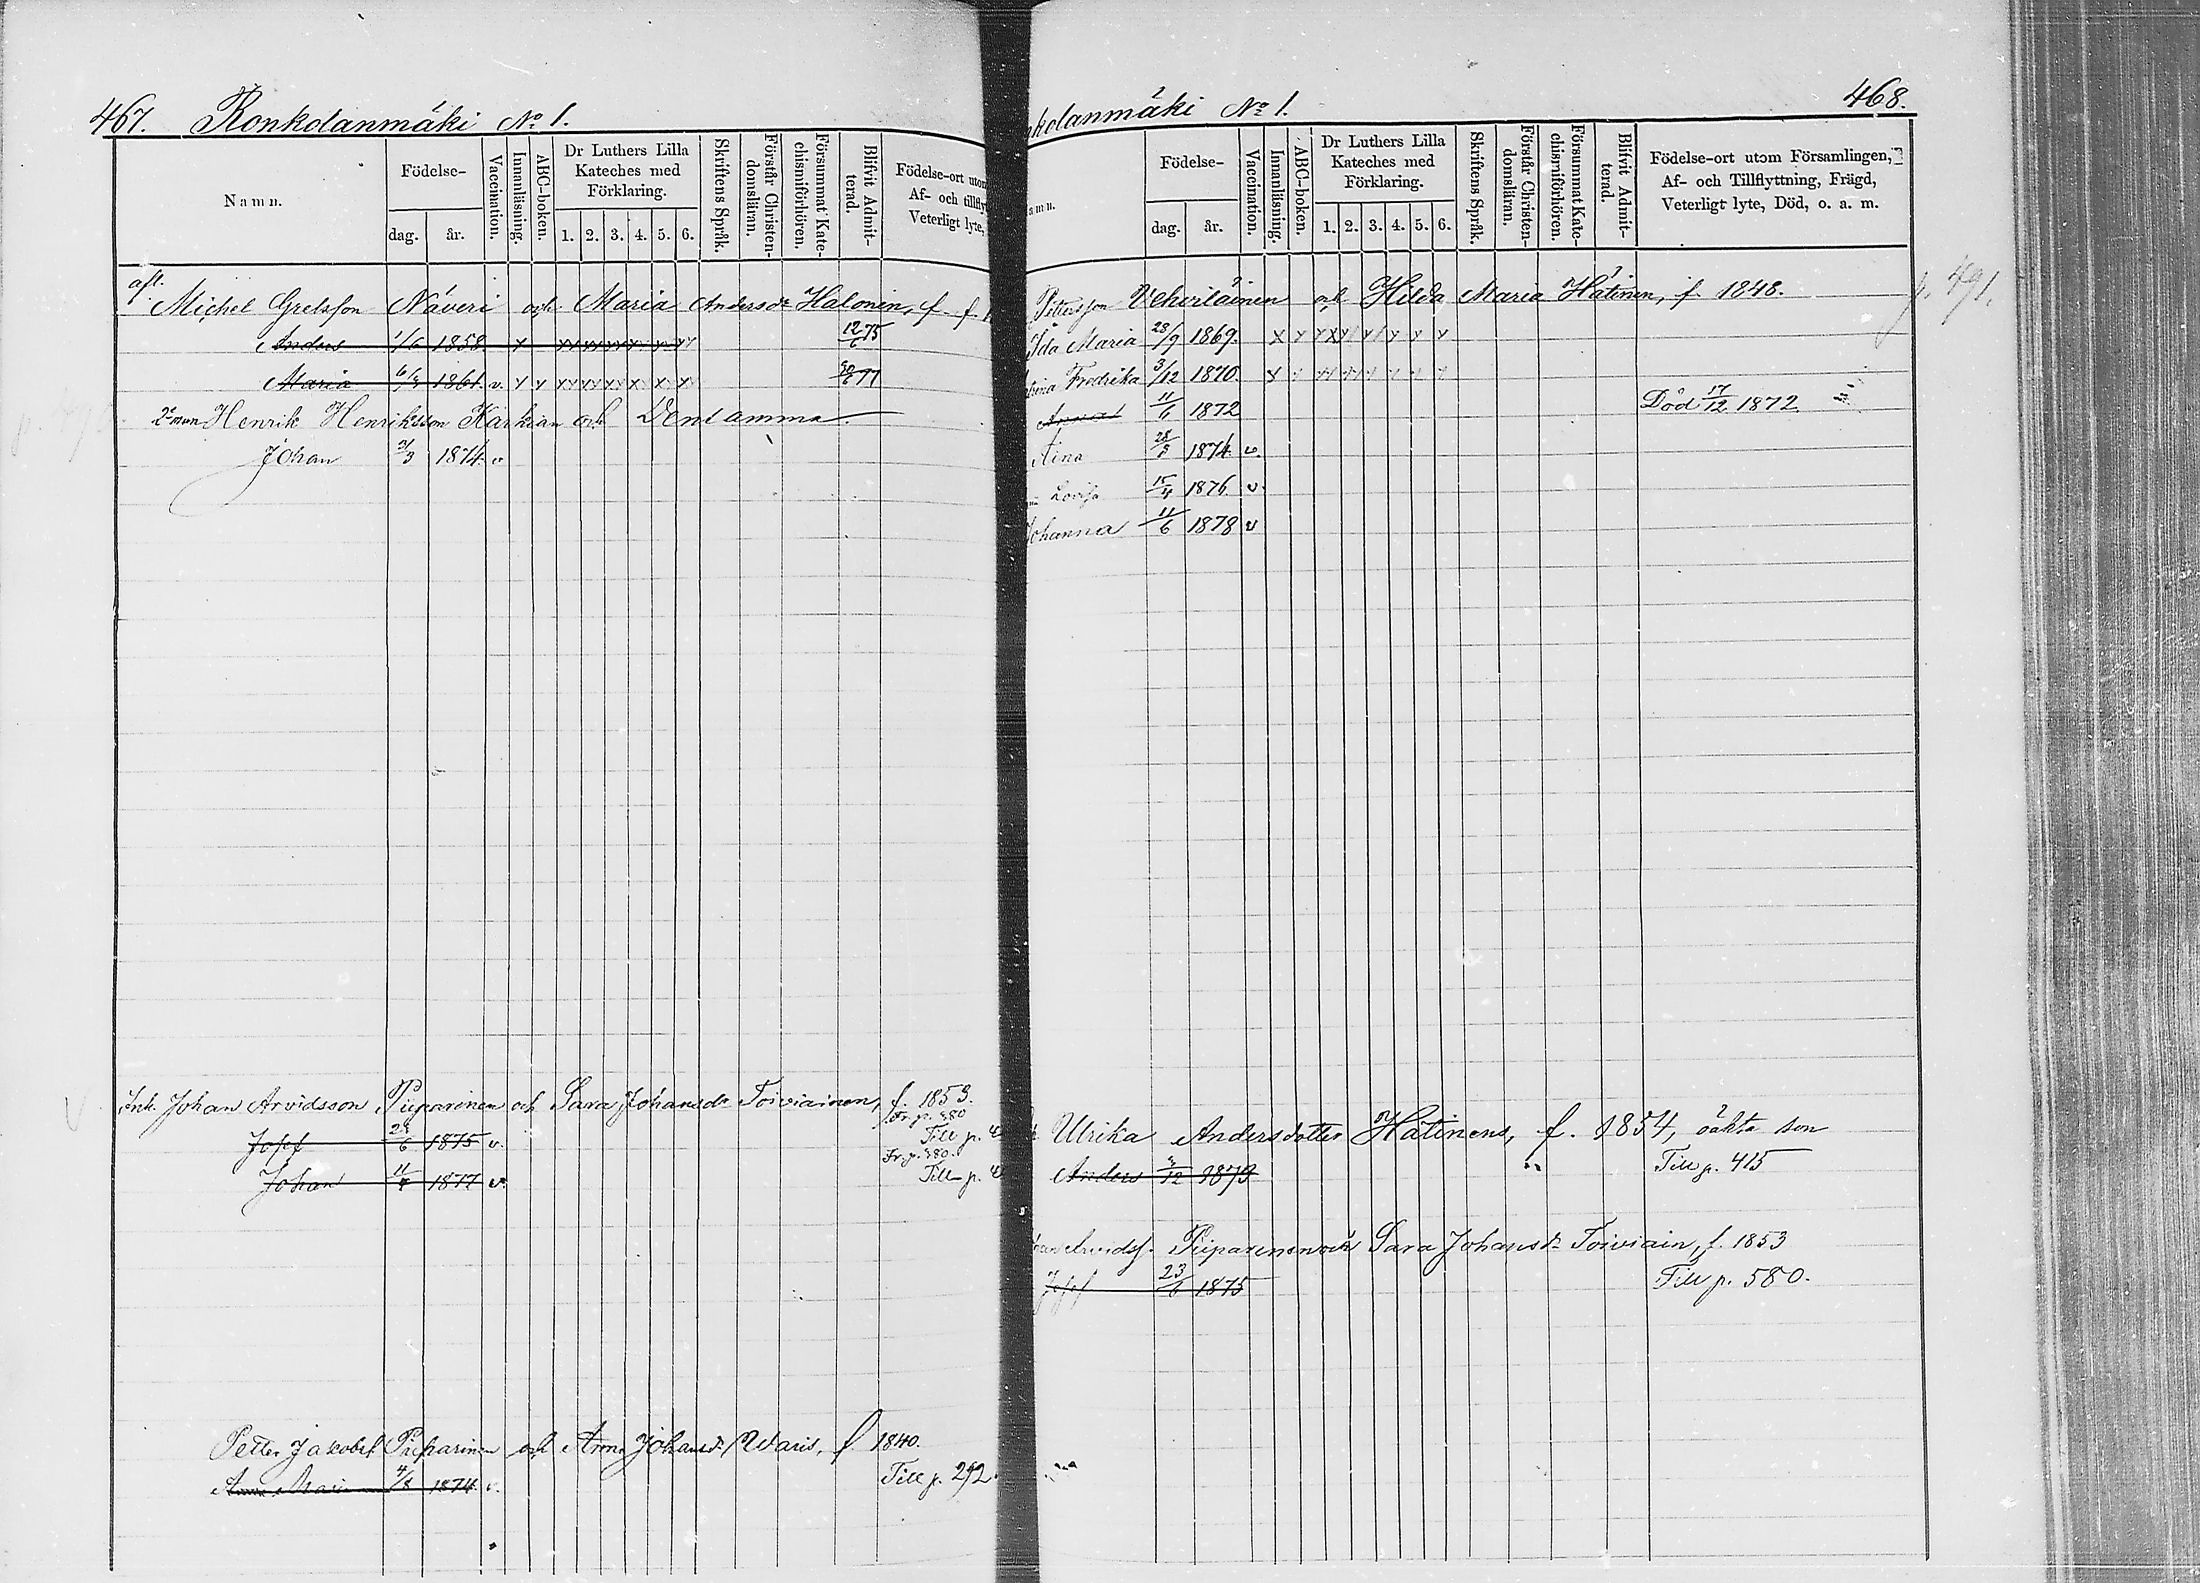 467. Ronkolanmäki No 1.
Namn.
Födelse-
dag.
år.
Vaccination.
Innanläsning.
ABC-boken.
Dr Luthers Lilla Kateches med Förklaring.
1. 2. 3. 4. 5. 6.
Skriftens Språk.
Förstår Christen-domsläran.
Försummat Kate-chismiförhören.
Blifvit Admit-terad.
Födelse-ort utom
Af- och tillfly
Veterligt lyte,
afl.
Michel Gretsson Näveri och Maria Andersdr Halonin, f. f.
Anders 1/6 1858. x 12/6 75
Maria 6/3 1861. v. x x 77
2e man Henrik Henriksson och Densamma
Johan 31/3 1874. v
Inh. Johan Arvidsson Piiparinen och Sara Johansdr Toiviainen, f. 1853.
Fr. p. 380
Josef 23/6 1875 v. Till p.
Fr. p. 380.
Johan 1877 v. Till p.
Petter Jakobss. Piiparinen och Anna Johansdr Waris, f 1840.
Anna Maria 4/8 1874. v. Till p. 292.
468.
kolanmäki No 1.
amn.
Födelse-
dag.
år.
Vaccination.
Innanläsning.
ABC-boken.
Dr Luthers Lilla Kateches med Förklaring.
1. 2. 3. 4. 5. 6.
Skriftens Språk.
Förstår Christen-domsläran.
Försummat Kate-chismiförhören.
Blifvit Admit-terad.
Födelse-ort utom Församlingen,
Af- och Tillflyttning, Frägd,
Veterligt lyte, Död, o. a. m.
Pettersson Vehviläinen och Hilda Maria Hätinen, f. 1848. p. 491.
Ida Maria 28/9 1869. x
Fredrika 3/12 1870. x
11/6 1872 Död 17/12 1872
Aina 1874. v.
Lovisa 15/4 1876 v.
Johanna 11/6 1878 v
Ulrika Andersdotter Hätinens, f. 1854, oäkta son
Anders 1879 " Till p. 415
Arvidss. Piiparinen och Sara Johansdr Toiviain, f. 1853
Josef 23/6 1875 Till p. 580.